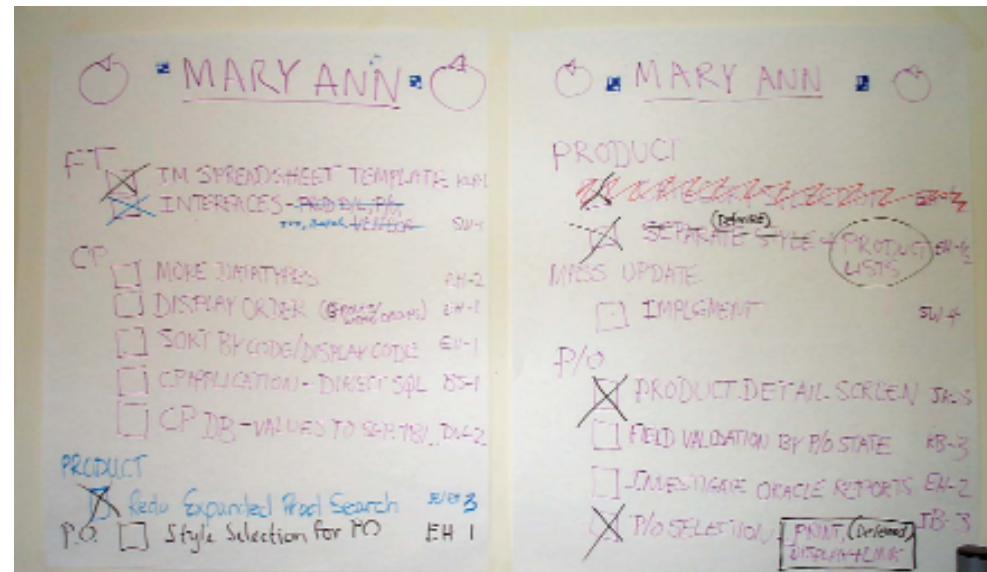 MARY ANN
FT
TM SPREADSHEET TEMPLATE
INTERFACES - PROD D/L, P/O,
VENDOR SW-1
CP
MORE DATATYPES EH-2
DISPLAY ORDER EH-1
SORT BY CODE/DISPLAY CODE EH-1
CP APPLICATION - DIRECT SQL DS-1
CP DB - VALUES TO SEP. TBL
PRODUCT
Redo Expanded Prod Search
P.O. Style Selection for PO EH 1
MARY ANN
PRODUCT
(DEFINE)
SEPARATE STYLE + PRODUCT
LISTS
MASS UPDATE
IMPLEMENT SW 4
P/O
PRODUCT DETAIL SCREEN
FIELD VALIDATION BY P/O STATE KB-3
INVESTIGATE ORACLE REPORTS EH-2
P/O SELECTION PRINT, (Deferred) JB-3
DISPLAY + LINK